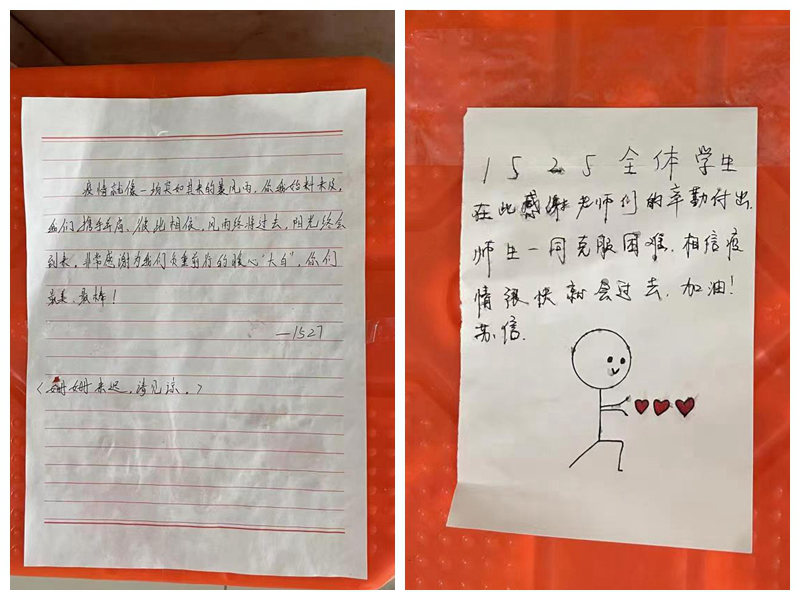 疫情就像一场突如其来的暴风雨,你我始料未及,
我们携手互应、彼此相依,风雨终将过去,阳光终会
到来,非常感谢为我们负重前行的暖心“大白”,你们
最美、最棒!
—1527
(姗姗来迟,请见谅。)
1525全体学生
在此感谢老师们的辛勤付出.
师生一同克服困难.相信疫
情很快就会过去.加油!
苏信.